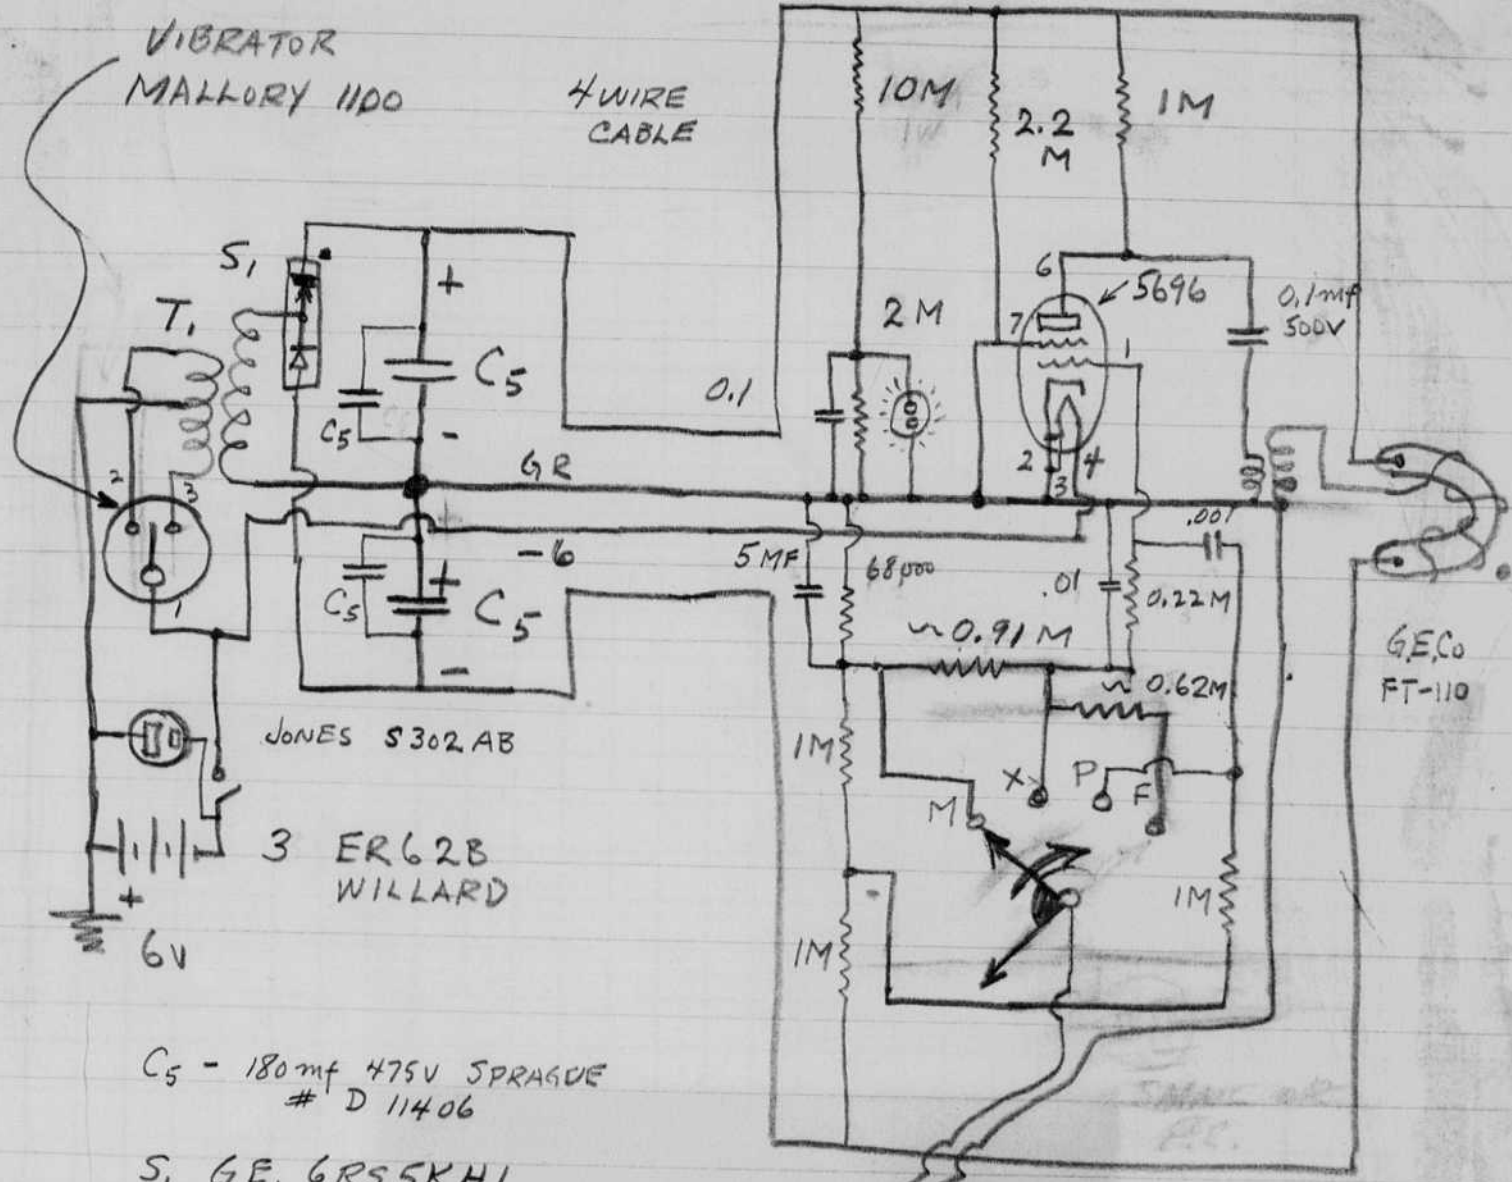 VIBRATOR
MALLORY 1100
4 WIRE
CABLE
10M
1W
2.2
M
1M
S1
T1
+
C5
C5
-
0.1
2M
6
5696
7
1
2
3
4
0.1mf
500V
2
3
1
GR
-6
+
C5
+
C5
-
5MF
68,000
.01
.001
0.22M
~0.91M
~0.62M
G.E.Co
FT-110
JONES S302AB
1M
M
X
P
F
3 ER62B
WILLARD
+
6V
-
1M
1M
C5 - 180mf 475V SPRAGUE
# D 11406
S1 GE. 6RS5KH1